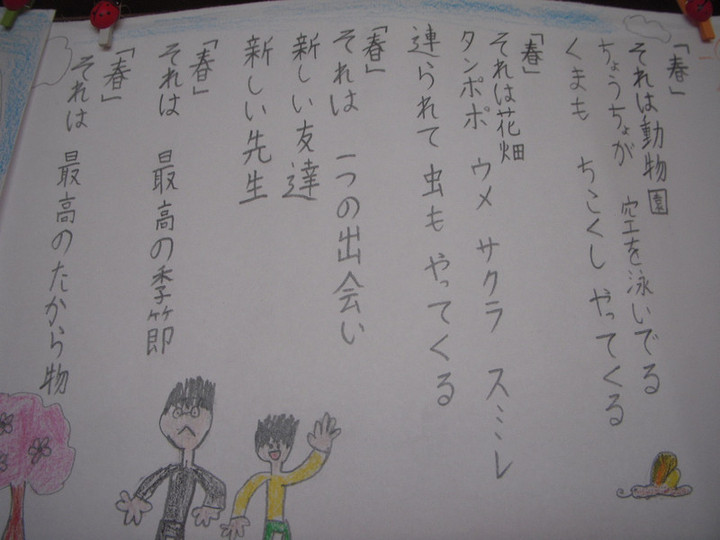 「春」
それは動物園
ちょうちょが 空を泳いでる
くまも ちこくし やってくる
「春」
それは花畑
タンポポ ウメ サクラ スミレ
連られて 虫も やってくる
「春」
それは 一つの出会い
新しい友達
新しい先生
「春」
それは 最高の季節
「春」
それは 最高のたから物